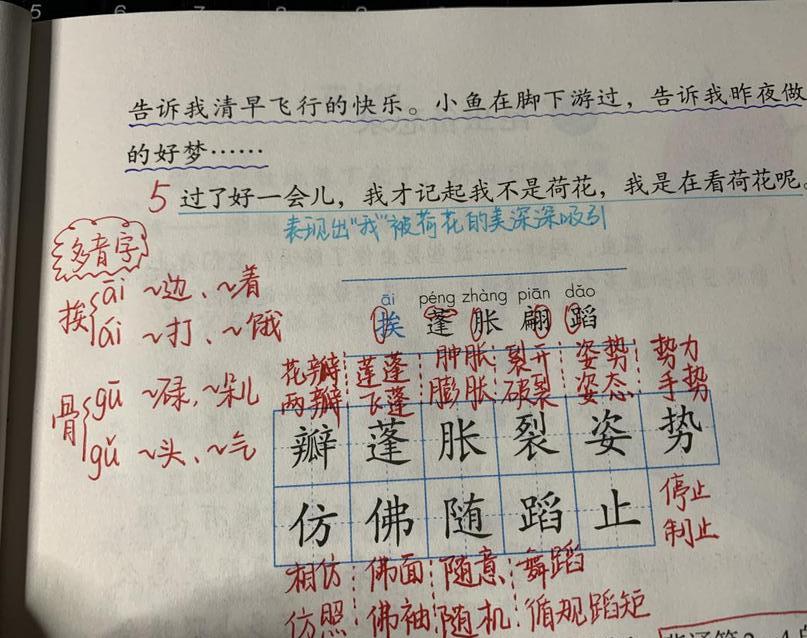 5 6 7 8
告诉我清早飞行的快乐。小鱼在脚下游过，告诉我昨夜做
的好梦……
5 过了好一会儿，我才记起我不是荷花，我是在看荷花呢。
表现出“我”被荷花的美深深吸引
多音字
挨 āi ~边、~着
ái ~打、~饿
骨 gū ~碌、~朵儿
gǔ ~头、~气
āi péng zhàng piān dǎo
挨 蓬 胀 翩 蹈
花瓣 莲蓬 肿胀 裂开 姿势 势力
两瓣 飞蓬 膨胀 破裂 姿态 手势
瓣 蓬 胀 裂 姿 势
仿 佛 随 蹈 止
停止
制止
相仿 佛面 随意 舞蹈
仿照 佛袖 随机 循规蹈矩